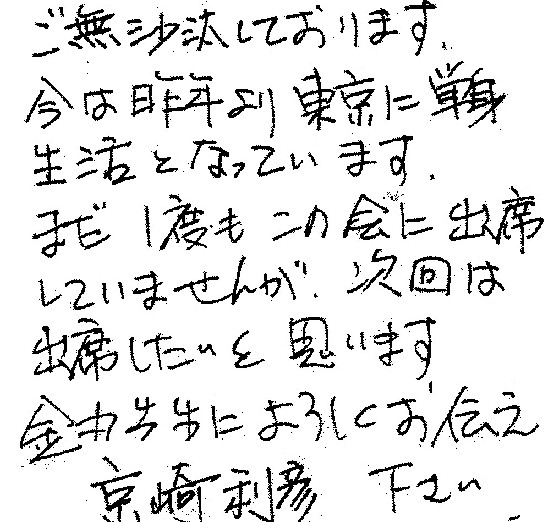 ご無沙汰しております.
今は昨年より東京に単身
生活となっています.
まだ1度もこの会に出席
していませんが、次回は
出席したいと思います
先生によろしくお伝え
京崎利彦 下さい.